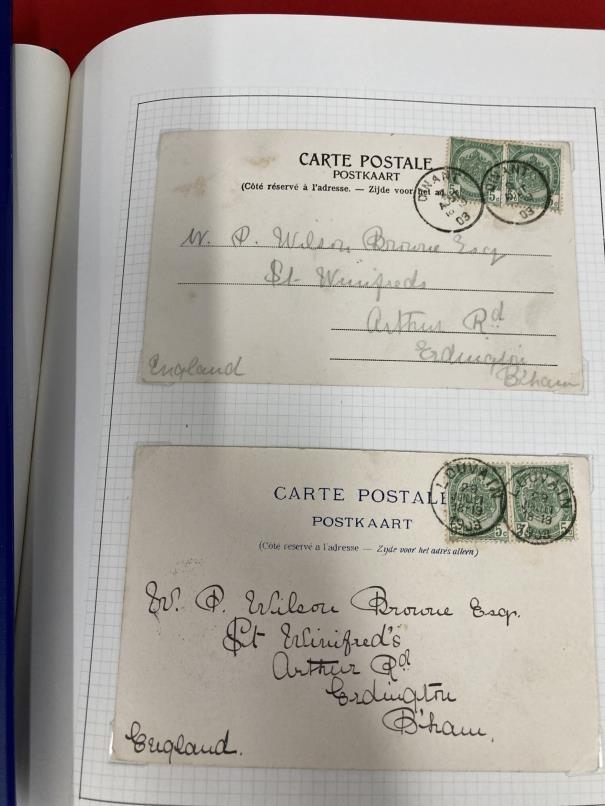 CARTE POSTALE
POSTKAART
(Côté réservé à l'adresse. — Zijde voor het ad
DINANT
03
5c
W. P. Wilson Browne Esq
St Winifreds
Arthur Rd
Erdington
B'ham
England
CARTE POSTALE
POSTKAART
(Côté réservé à l'adresse — Zijde voor het adres alleen)
LOUVAIN
29
JUIL
18-19
LOUVAIN
29
18-19
5c
W. P. Wilson Browne Esq.
St Winifred's
Arthur Rd
Erdington
B'ham.
England.